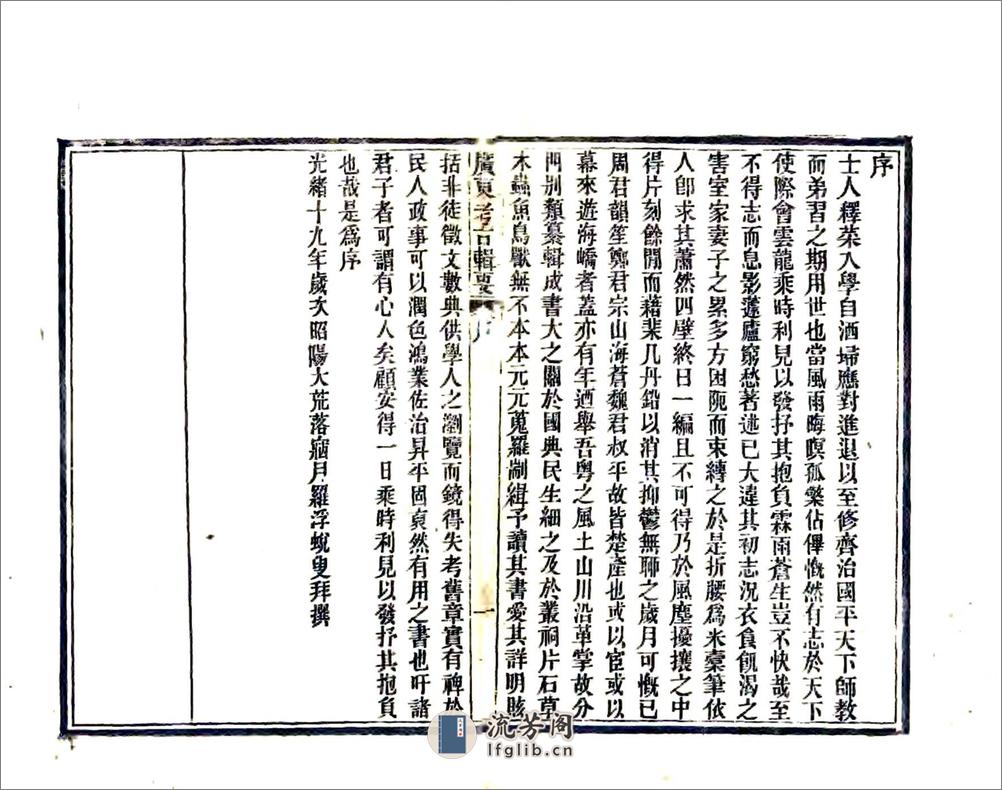 序
士人釋菜入學自洒埽應對進退以至修齊治國平天下師教
而弟習之期用世也當風雨晦暝孤檠佔俾慨然有志於天下
使際會雲龍乘時利見以發抒其抱負霖雨蒼生豈不快哉至
不得志而息影蘧廬窮愁著述已大違其初志況衣食飢渴之
害室家妻子之累多方困阨而束縛之於是折腰爲米橐筆依
人卽求其蕭然四壁終日一編且不可得乃於風塵擾攘之中
得片刻餘閒而藉棐几丹鉛以消其抑鬱無聊之歲月可慨已
周君韻笙鄭君宗山海蒼魏君叔平故皆楚產也或以宦或以
幕來遊海嶠者蓋亦有年迺舉吾粵之風土山川沿革掌故分
門别類纂輯成書大之關於國典民生細之及於叢祠片石草
木蟲魚鳥獸無不本本元元蒐羅剬緝予讀其書愛其詳明賅
廣東考古輯要 序 一
括非徒徵文數典供學人之瀏覽而鏡得失考舊章實有裨於
民人政事可以潤色鴻業佐治昇平固裒然有用之書也吁諸
君子者可謂有心人矣顧安得一日乘時利見以發抒其抱負
也哉是爲序
光緒十九年歲次昭陽大荒落𤶽月羅浮蛻叟拜撰
流芳阁
lfglib.cn